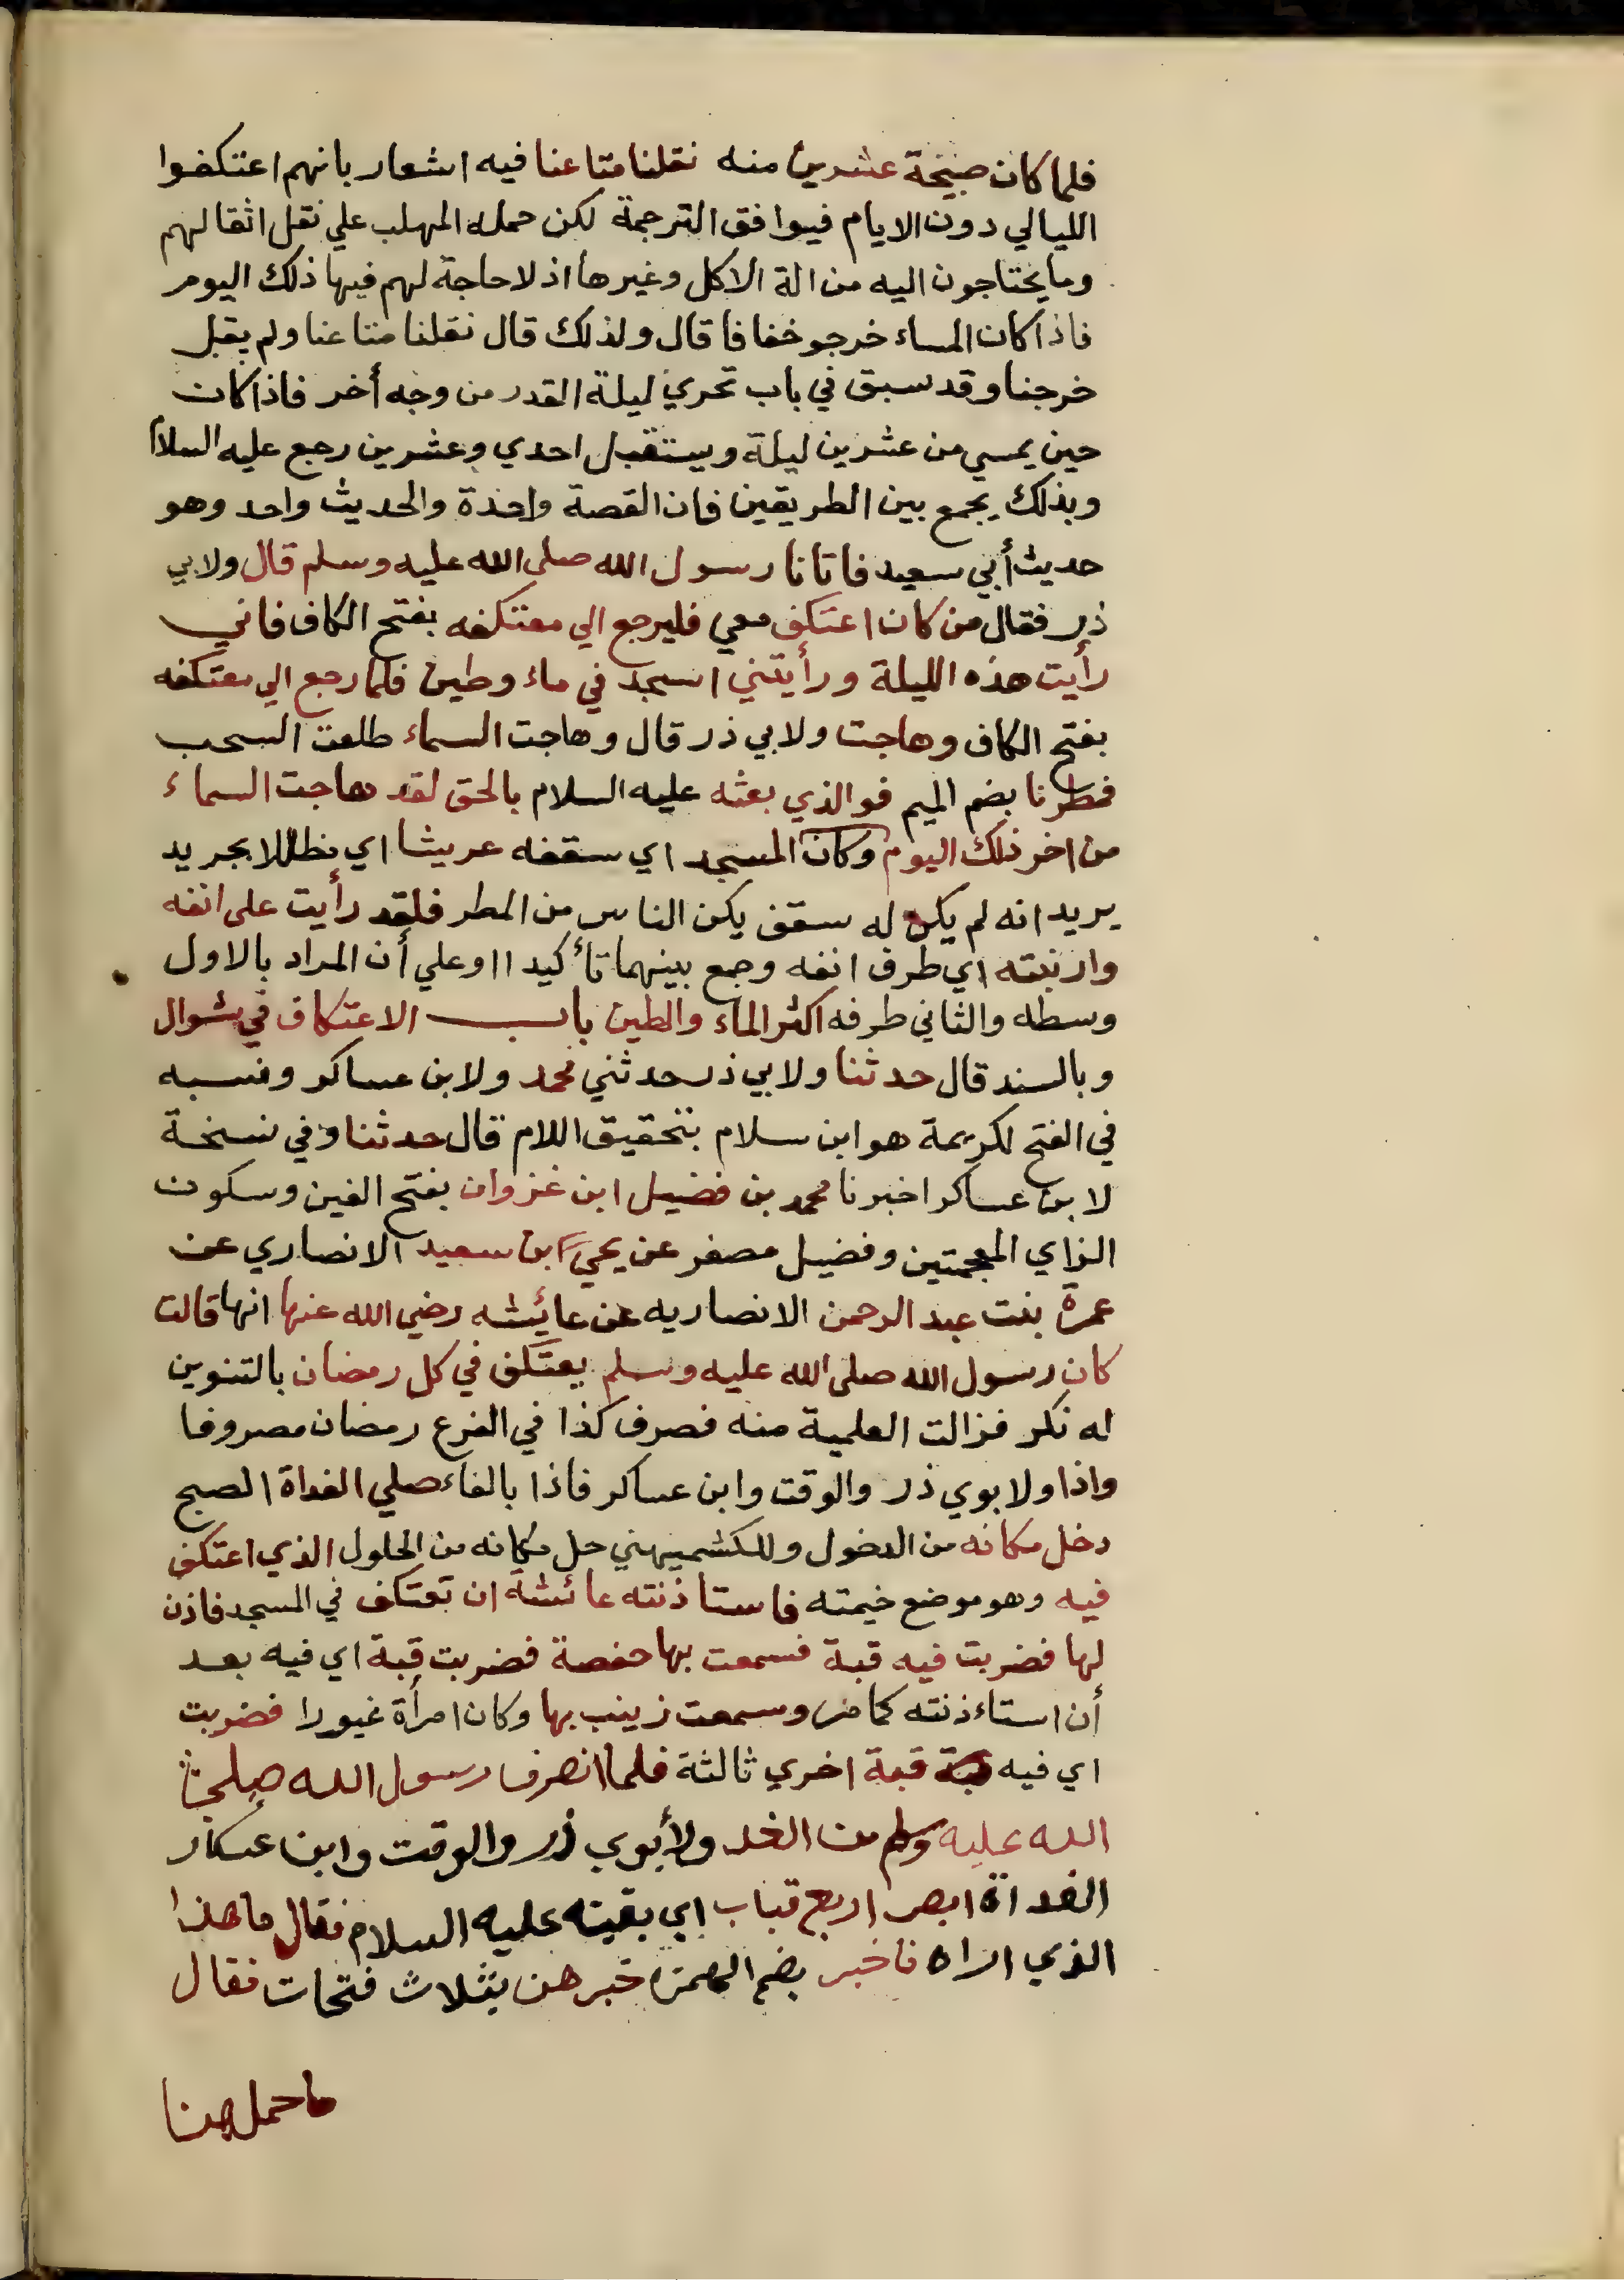 فلما كان صبيحة عشرين منه نقلنا متاعنا فيه اشعار بانهم اعتكفوا
الليالي دون الايام فيوافق الترجمة لكن حمله المهلب علي نقل اثقالهم
وما يحتاجون اليه من الة الاكل وغيرها اذ لا حاجة لهم فيها ذلك اليوم
فاذا كان المساء خرجو خفافا قال ولذلك قال نقلنا متاعنا ولم يقل
خرجنا وقد سبق في باب تحري ليلة القدر من وجه أخر فاذا كان
حين يمسي من عشرين ليلة ويستقبل احدي وعشرين رجع عليه السلام
وبذلك يجمع بين الطريقين فان القصة واحدة والحديث واحد وهو
حديث أبي سعيد فاتانا رسول الله صلى الله عليه وسلم قال ولابي
ذر فقال من كان اعتكف معي فليرجع الي معتكفه بفتح الكاف فاني
رأيت هذه الليلة ورأيتني اسجد في ماء وطين فلما رجع الي معتكفه
بفتح الكاف وهاجت ولابي ذر قال وهاجت السماء طلعت السحب
فمطرنا بضم الميم فوالذي بعثه عليه السلام بالحق لقد هاجت السماء
من اخر ذلك اليوم وكان المسجد اي سقفه عريشا اي مظللا بجريد
يريد انه لم يكن له سقف يكن الناس من المطر فلقد رأيت على انفه
وارنبته اي طرف انفه وجمع بينهما تأكيدا اوعلي أن المراد بالاول
وسطه والثاني طرفه اكثر الماء والطين باب الاعتكاف في شوال
وبالسند قال حدثنا ولابي ذر حدثني محمد ولابن عساكر ونسبه
في الفتح لكريمة هو ابن سلام بتحقيق اللام قال حدثنا وفي نسخة
لابن عساكر اخبرنا محمد بن فضيل ابن غزوان بفتح الغين وسكون
الزاي المعجمتين وفضيل مصغر عن يحيى ابن سعيد الانصاري عن
عمرة بنت عبد الرحمن الانصاريه عن عائيشه رضي الله عنها انها قالت
كان رسول الله صلى الله عليه وسلم يعتكف في كل رمضان بالتنوين
له نكر فزالت العلمية منه فصرف كذا في الفرع رمضان مصروفا
واذا ولابوي ذر والوقت وابن عساكر فاذا بالفاء صلي الغداة الصبح
دخل مكانه من الدخول وللكشميهني حل مكانه من الحلول الذي اعتكف
فيه وهو موضع خيمته فاستاذنته عائشة ان تعتكف في المسجد فاذن
لها فضربت فيه قبة فسمعت بها حفصة فضربت قبة اي فيه بعد
أن استاءذنته كما مر وسمعت زينب بها وكان امرأة غيورا فضربت
اي فيه قبة اخري ثالثة فلما انصرف رسول الله صلى
الله عليه وسلم من الغد ولأبوي ذر والوقت وابن عساكر
الغداة ابصر اربع قباب اي بقبته عليه السلام فقال ما هذا
الذي اراه فاخبر بضم الهمزه خبرهن بثلاث فتحات فقال
ما حملهنا